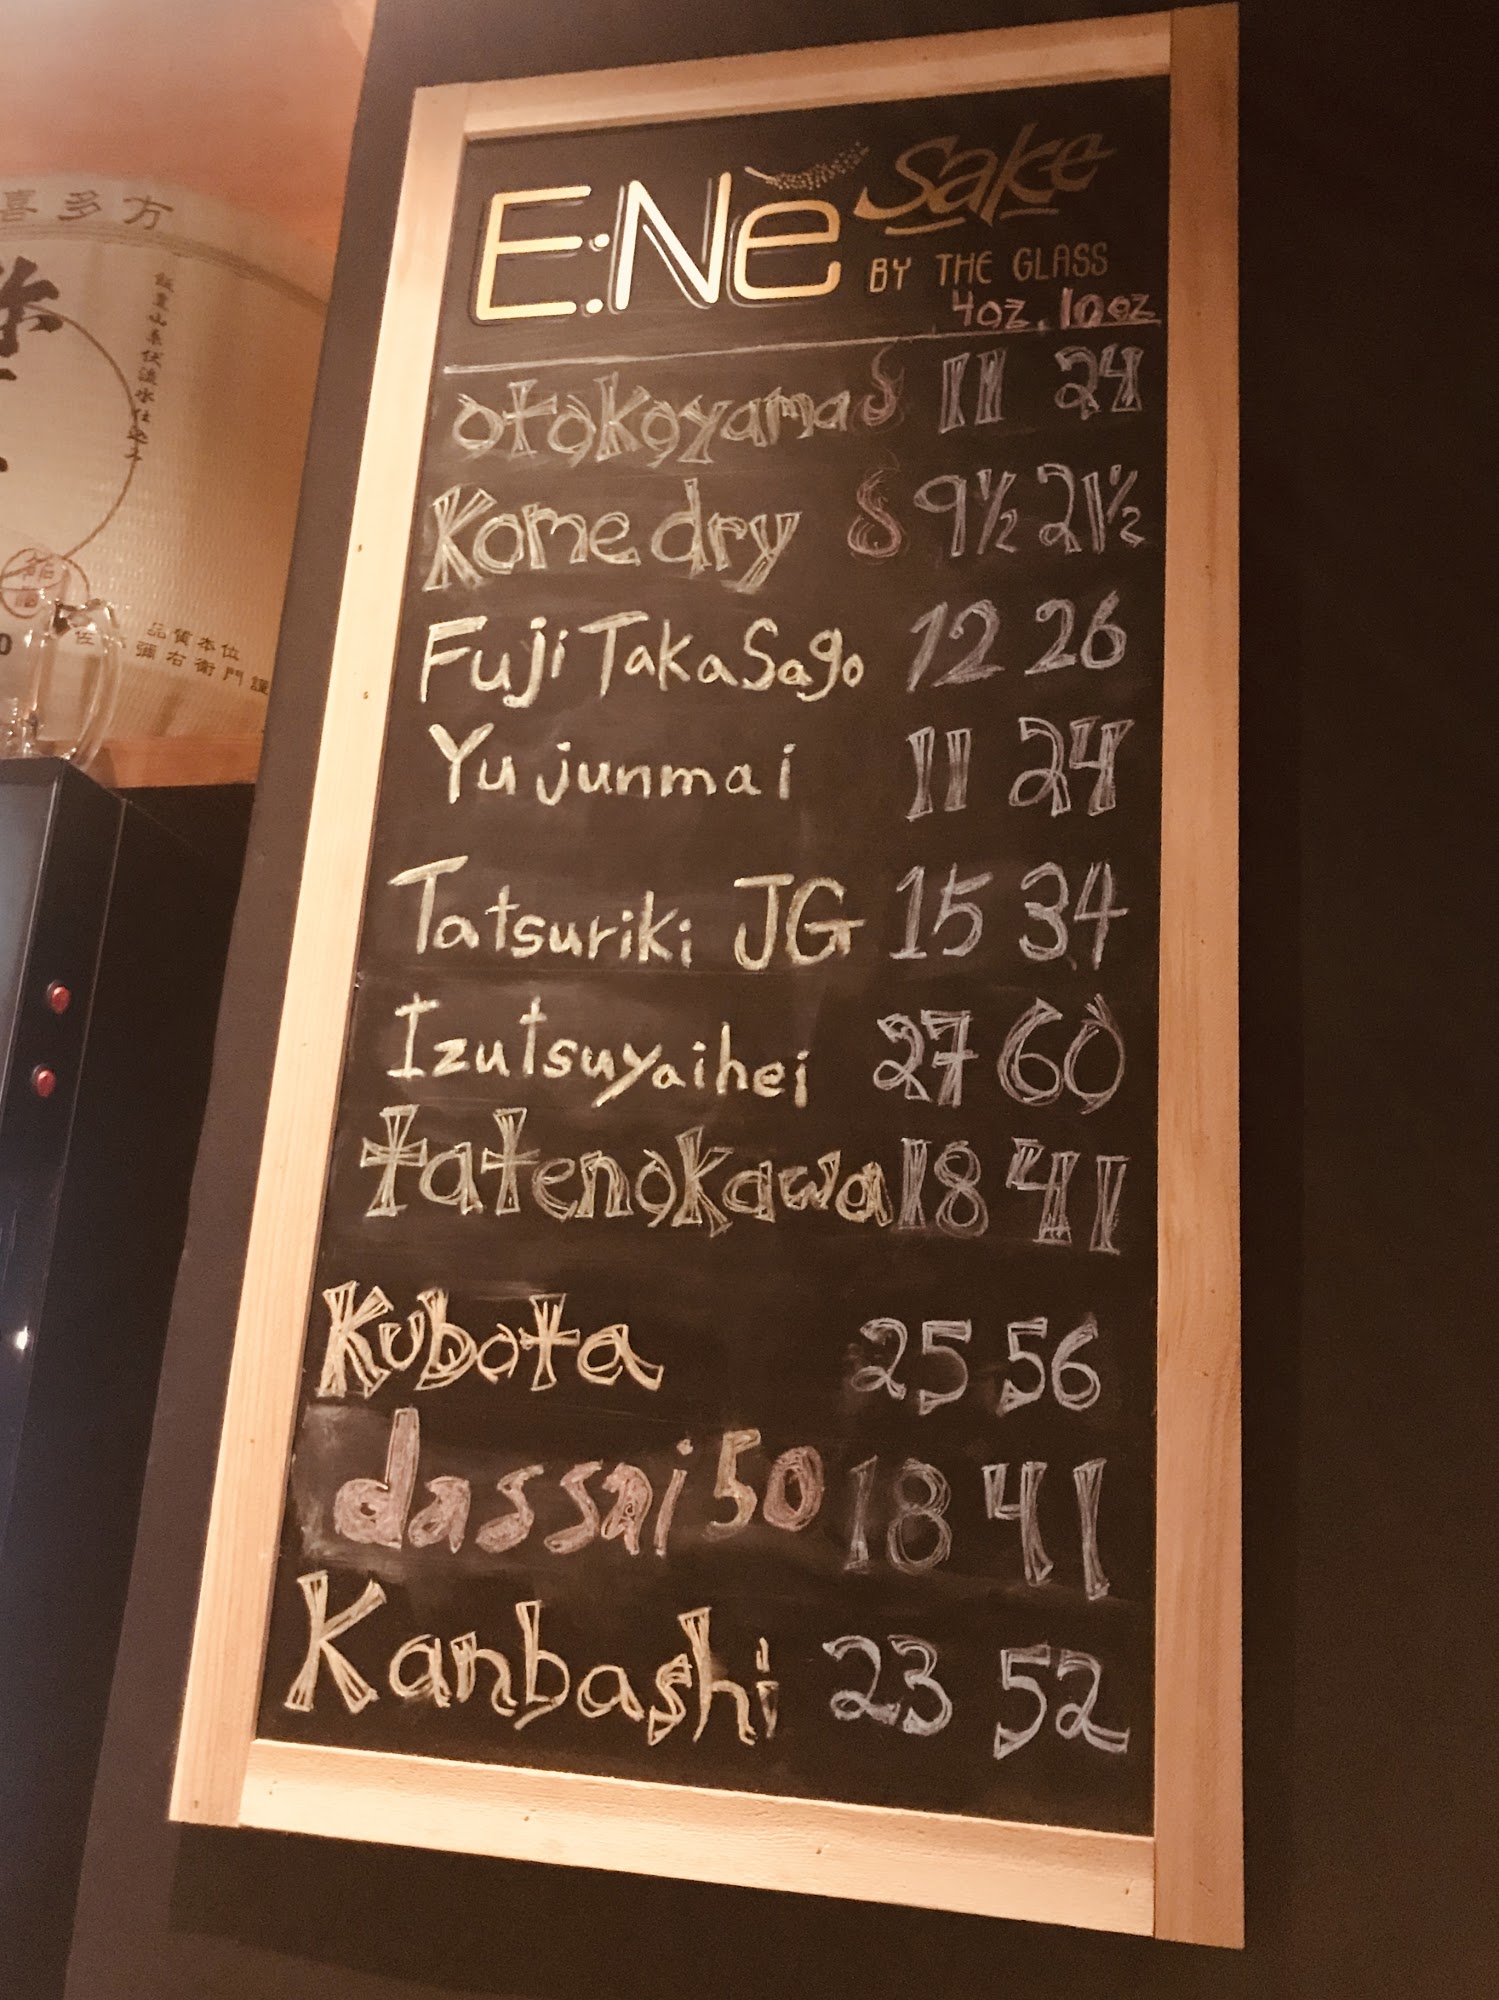 喜多方
飯豊山系伏流水仕込み
品質本位
佐 彌右衛門謹
E:Né Sake
BY THE GLASS
4oz. 10oz
otokoyama 11 24
Kome dry 9½ 21½
Fuji Takasago 12 26
Yu junmai 11 24
Tatsuriki JG 15 34
Izutsuyaihei 27 60
tatenokawa 18 41
Kubota 25 56
dassai 50 18 41
Kanbashi 23 52